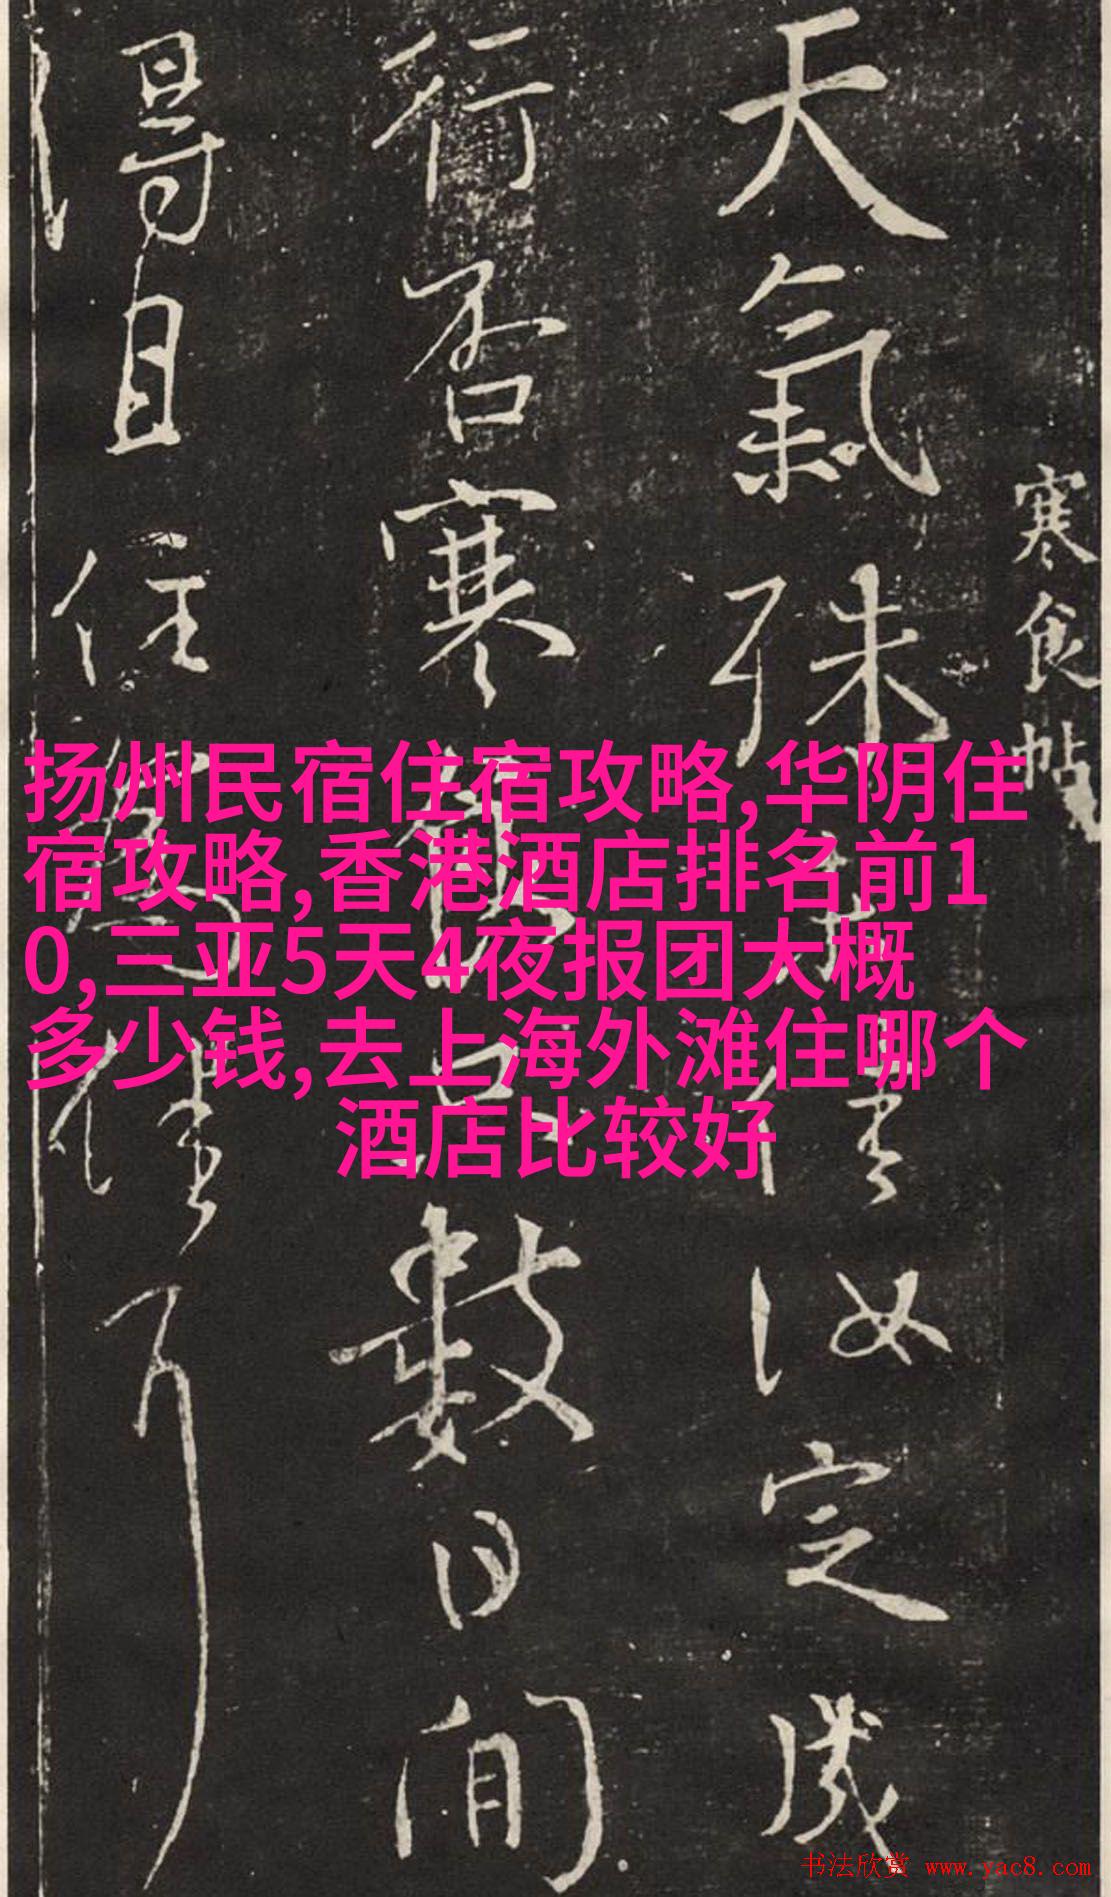 寒食帖
天氣殊未佳汝定成
行否寒食只數日間
得且住為佳耳
扬州民宿住宿攻略,华阴住
宿攻略,香港酒店排名前1
0,三亚5天4夜报团大概
多少钱,去上海外滩住哪个
酒店比较好
书法欣赏 www.yac8.com